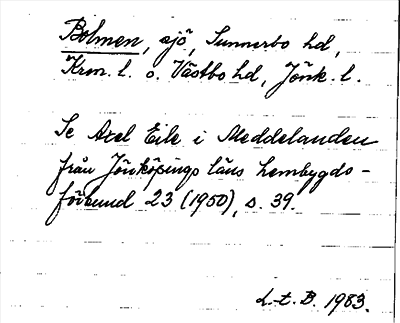 Bolmen, sjö, Sunnerbo hd,
Kron. l. o. Västbo hd, Jönk. l.
Se Axel Eile i Meddelanden
från Jönköpings läns hembygds-
förbund 23 (1950), s. 39.
L.t.B. 1983.